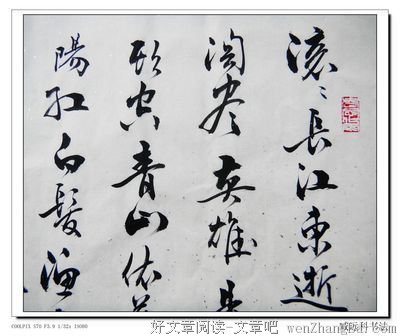 滚〻長江東逝
淘尽英雄
頭空青山依
陽红白髮漁
COOLPIX S70 F3.9 1/32s ISO80
好文章阅读-文章吧 wenZhangba.com
书法